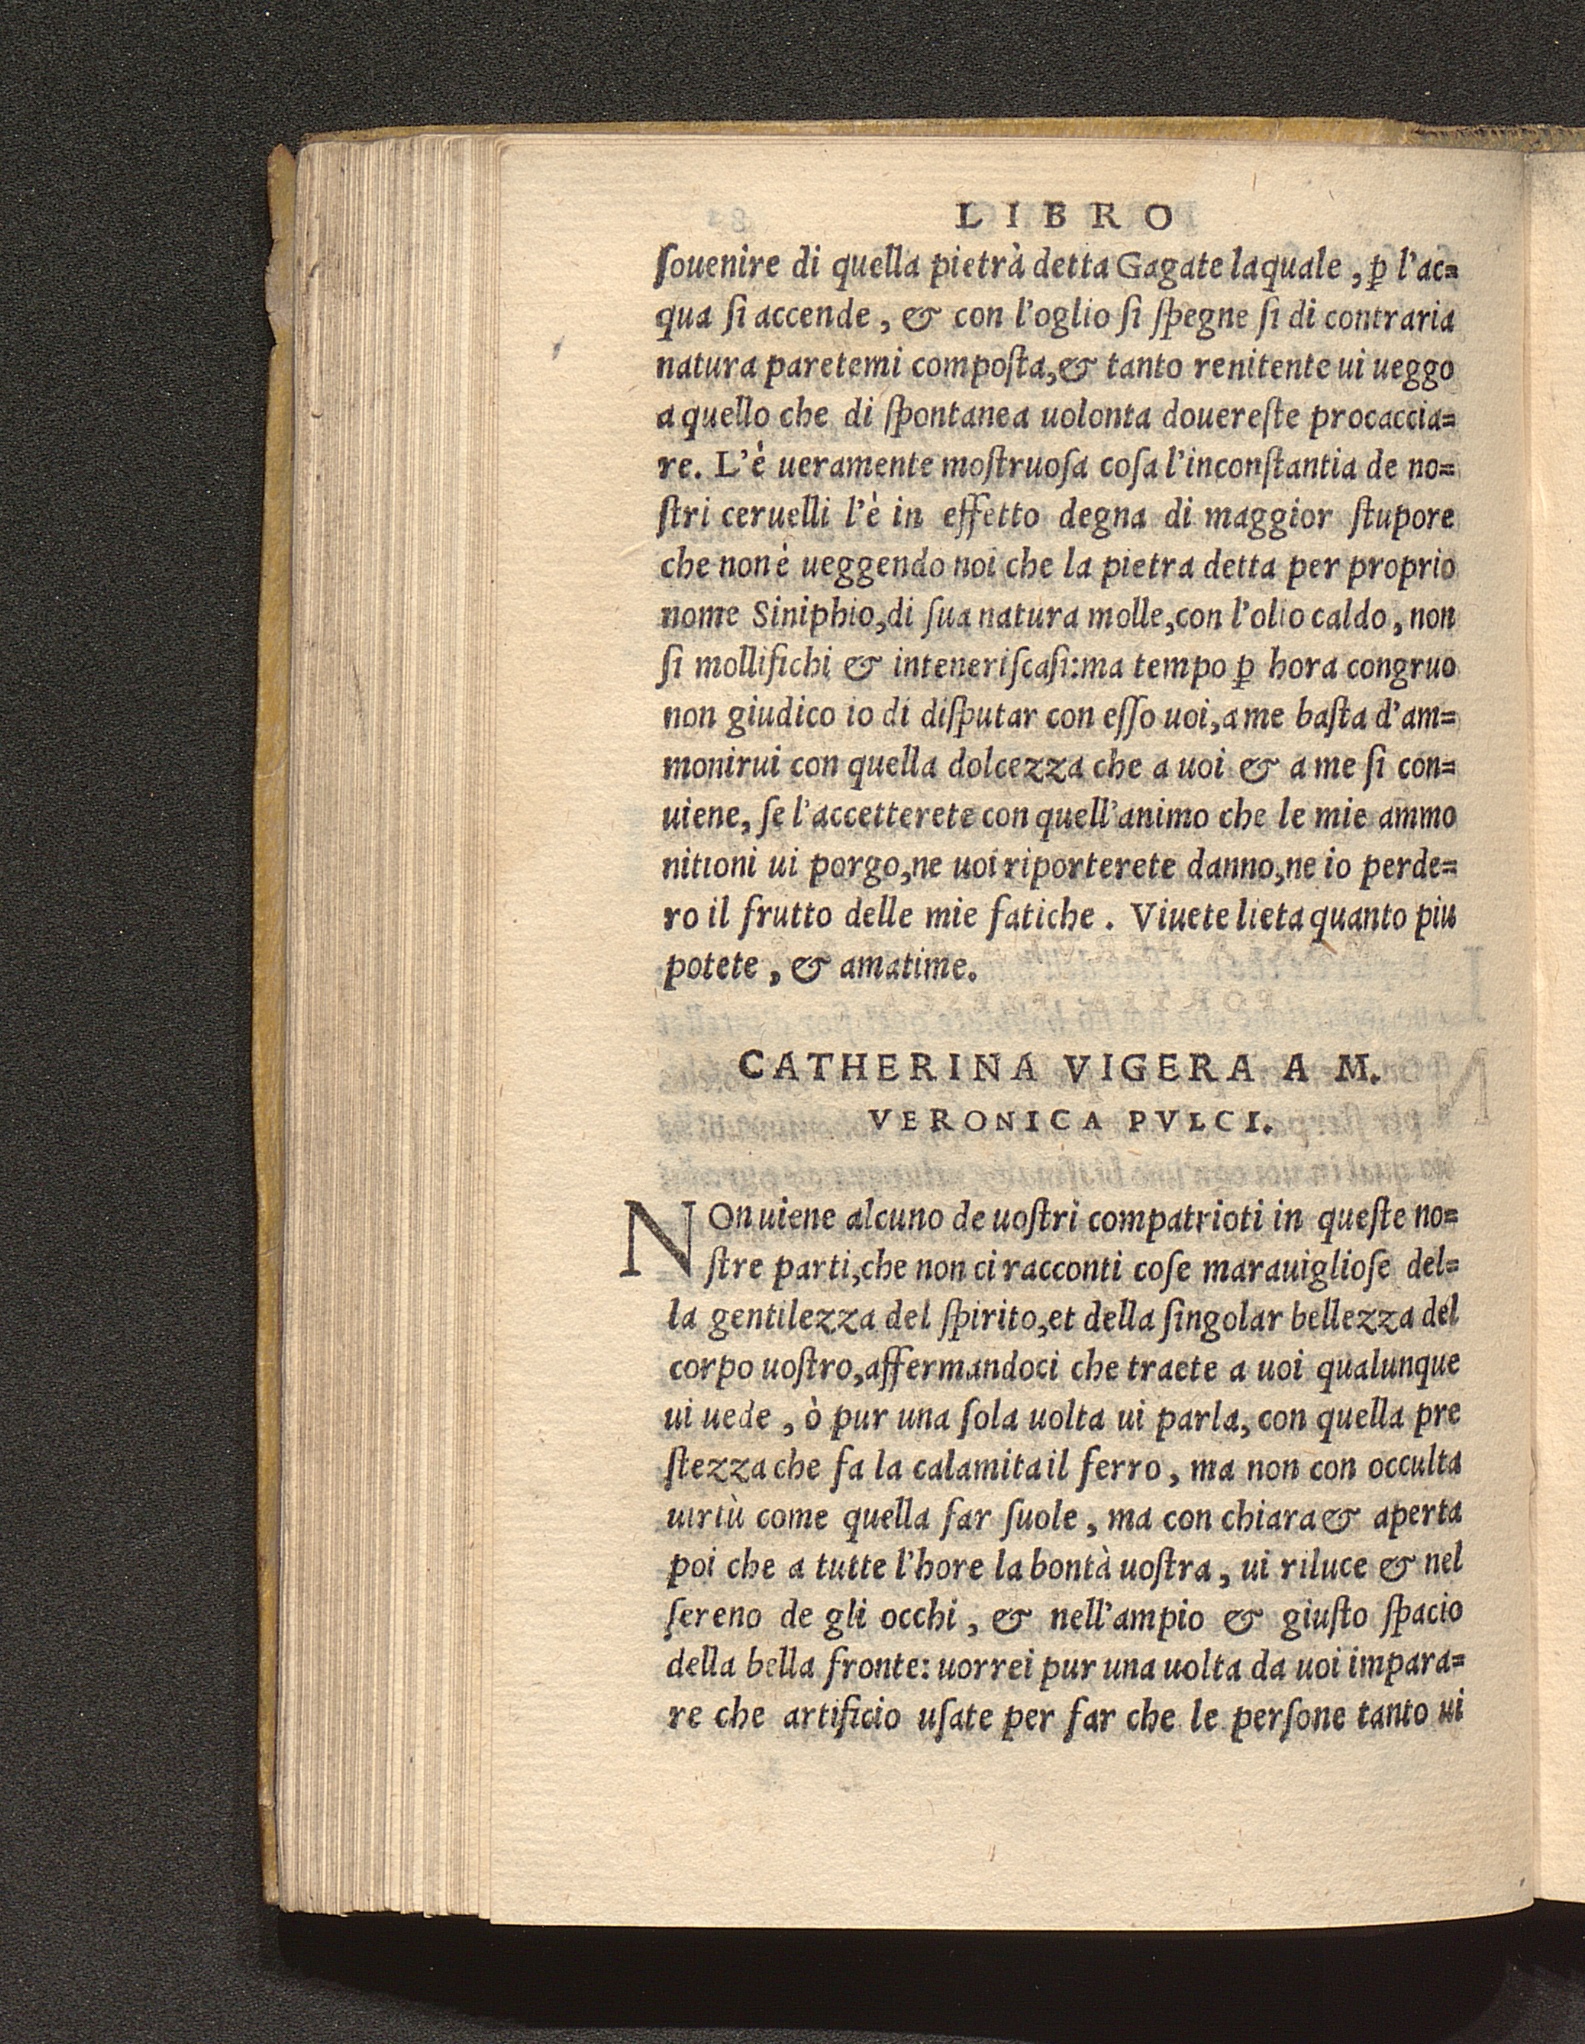 LIBRO
ſouenire di quella pietrà detta Gagate laquale, ꝑ l'ac=
qua ſi accende, & con l'oglio ſi ſpegne ſi di contraria
natura paretemi compoſta,& tanto renitente ui ueggo
a quello che di ſpontanea uolonta douereſte procaccia=
re. L'è ueramente moſtruoſa coſa l'inconſtantia de no=
ſtri ceruelli l'è in effetto degna di maggior ſtupore
che non è ueggendo noi che la pietra detta per proprio
nome Siniphio,di ſua natura molle,con l'olio caldo, non
ſi mollifichi & inteneriſcaſi:ma tempo ꝑ hora congruo
non giudico io di diſputar con eſſo uoi,a me baſta d'am=
monirui con quella dolcezza che a uoi & a me ſi con=
uiene, ſe l'accetterete con quell'animo che le mie ammo
nitioni ui porgo,ne uoi riporterete danno,ne io perde=
ro il frutto delle mie fatiche. Viuete lieta quanto piu
potete, & amatime.
CATHERINA VIGERA A M.
VERONICA PVLCI.
NOn uiene alcuno de uoſtri compatrioti in queſte no=
ſtre parti,che non ci racconti coſe marauiglioſe del=
la gentilezza del ſpirito,et della ſingolar bellezza del
corpo uoſtro,affermandoci che traete a uoi qualunque
ui uede, ò pur una ſola uolta ui parla, con quella pre
ſtezza che fa la calamita il ferro, ma non con occulta
uirtù come quella far ſuole, ma con chiara & aperta
poi che a tutte l'hore la bontà uoſtra, ui riluce & nel
ſereno de gli occhi, & nell'ampio & giuſto ſpacio
della bella fronte: uorrei pur una uolta da uoi impara=
re che artificio uſate per far che le perſone tanto ui